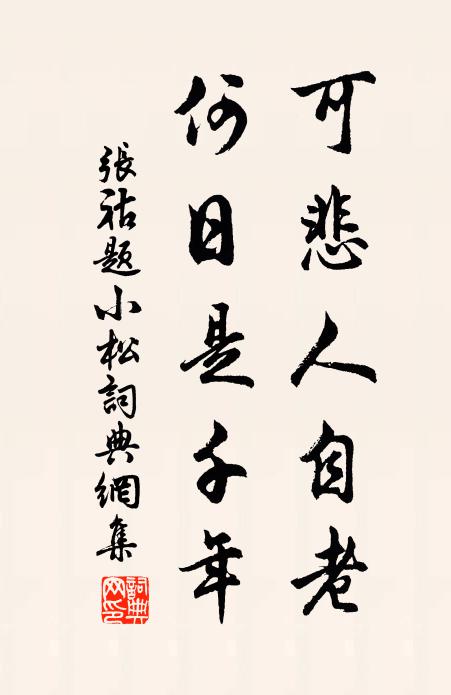 可悲人自老
何日是千年
張祜題小松詞典網集
詞典網印